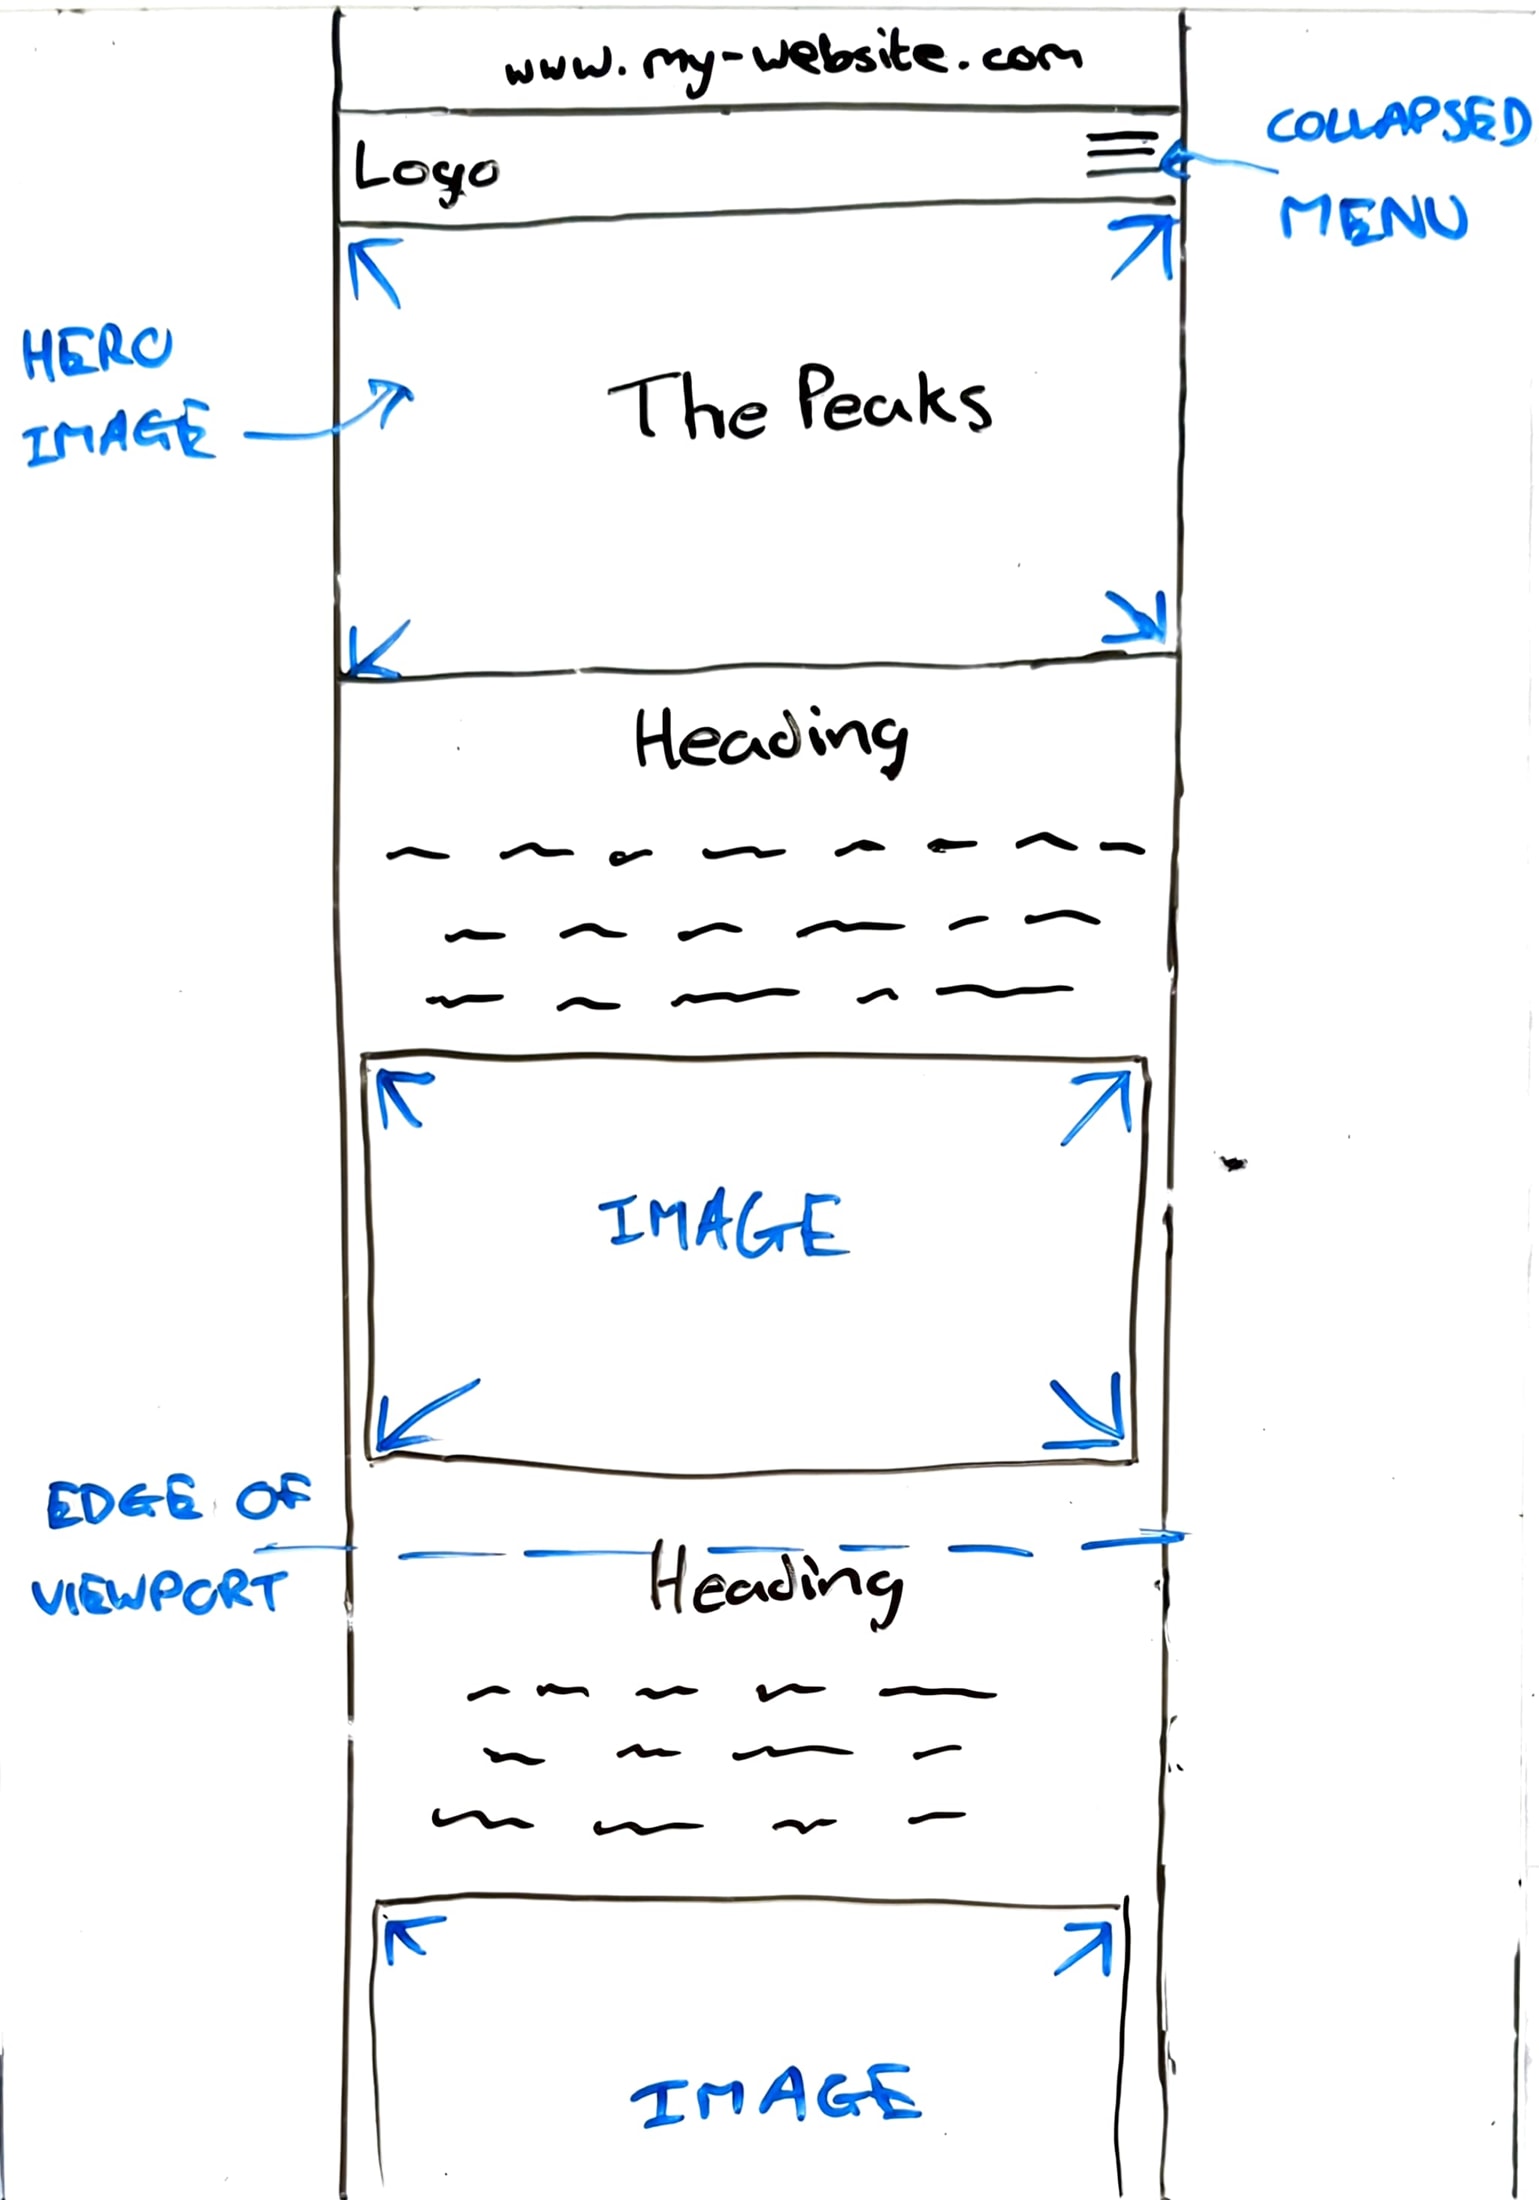 www.my-website.com
Logo
COLLAPSED
MENU
HERO
IMAGE
The Peaks
Heading
IMAGE
EDGE OF
VIEWPORT
Heading
IMAGE